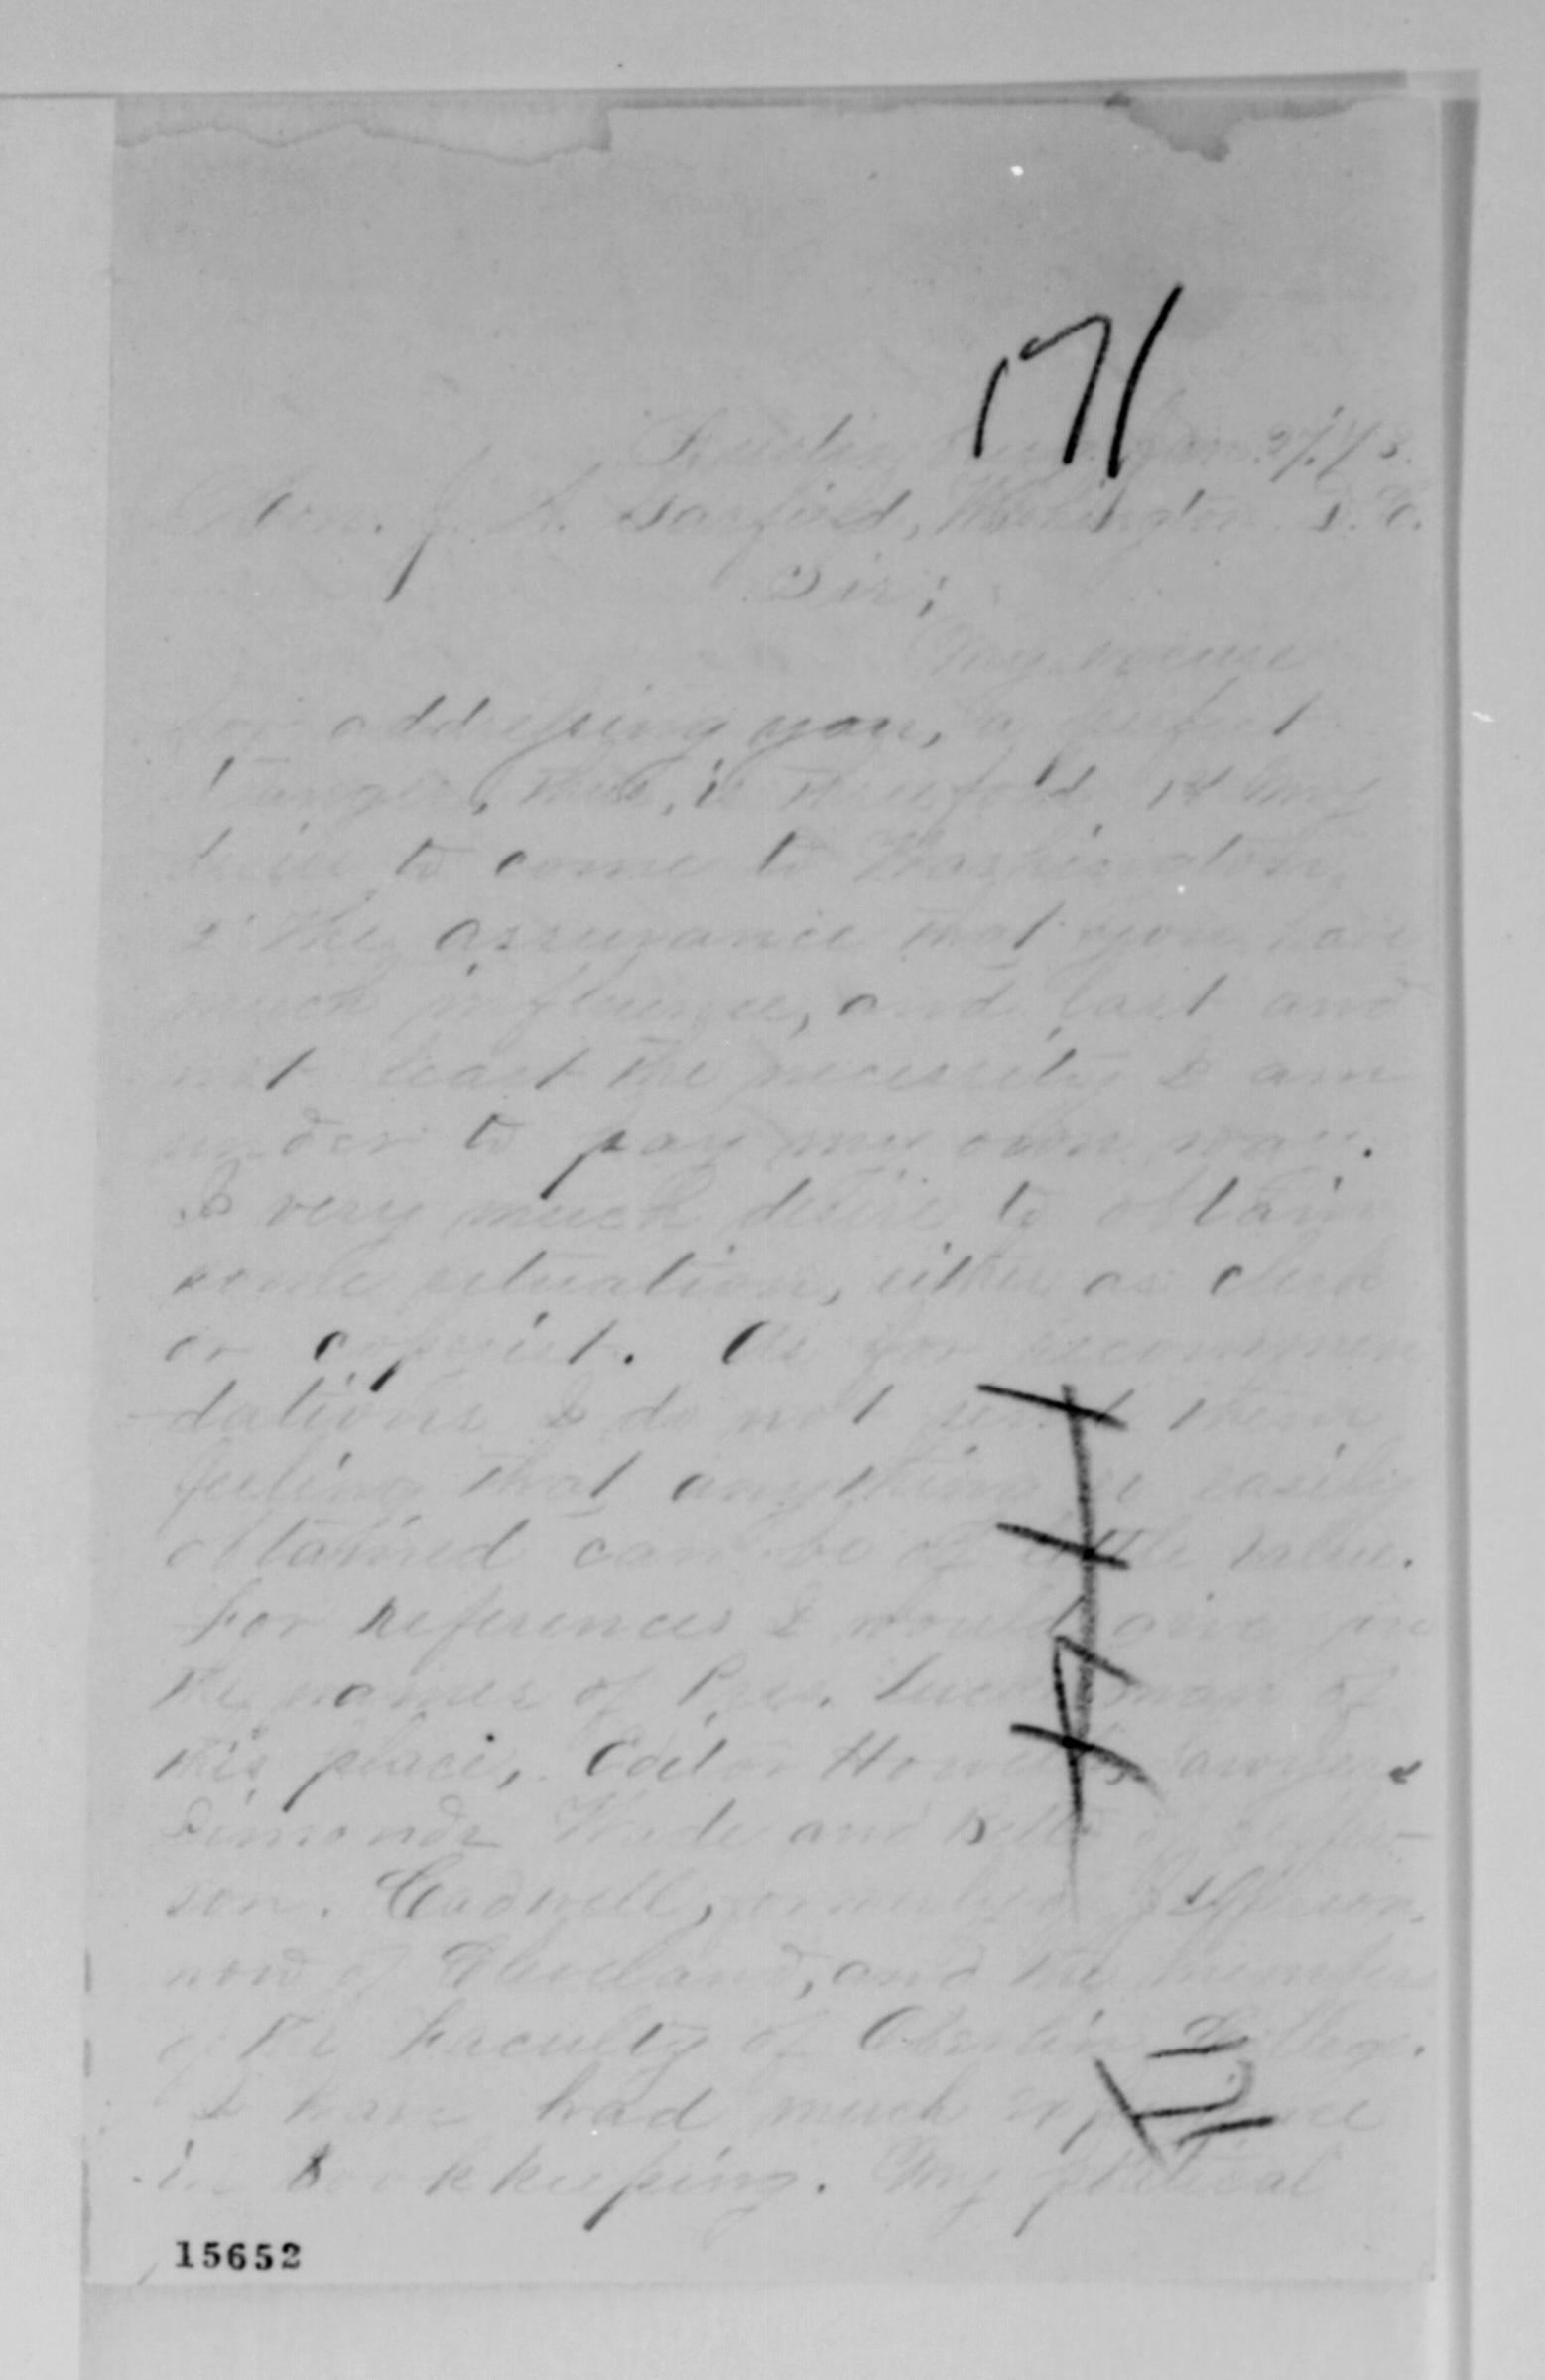 171
Jan. 27, 73.
Hon. J. A. Garfield, Washington D. C.
Sir;
My excuse
for addressing you, a perfect
stranger, thus, is threefold, 1st my
desire to come to Washington,
2d the assurance that you have
much influence, and last and
not least the necessity I am
under to pay my own way.
I very much desire to obtain
some situation, either as clerk
or copyist. As for recommen
dations I do not send them
feeling that anything so easily
obtained can be of little value.
For references I would give you
the names of Pres. of
this place, Editor Howells, Lawyers
Simonds Wade and Betts of Jeffer-
son. Cadwell, formerly of Jefferson,
now of Cleveland, and the members
of the Faculty of Oberlin College.
I have had much experience
in bookkeeping. My political
15652